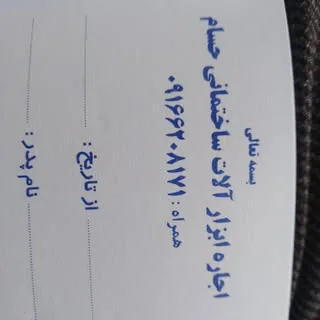 بسمه تعالی
اجاره ابزار آلات ساختمانی حسام
همراه : ۰۹۱۶۶۲۰۸۱۷۱
از تاریخ :
نام پدر :